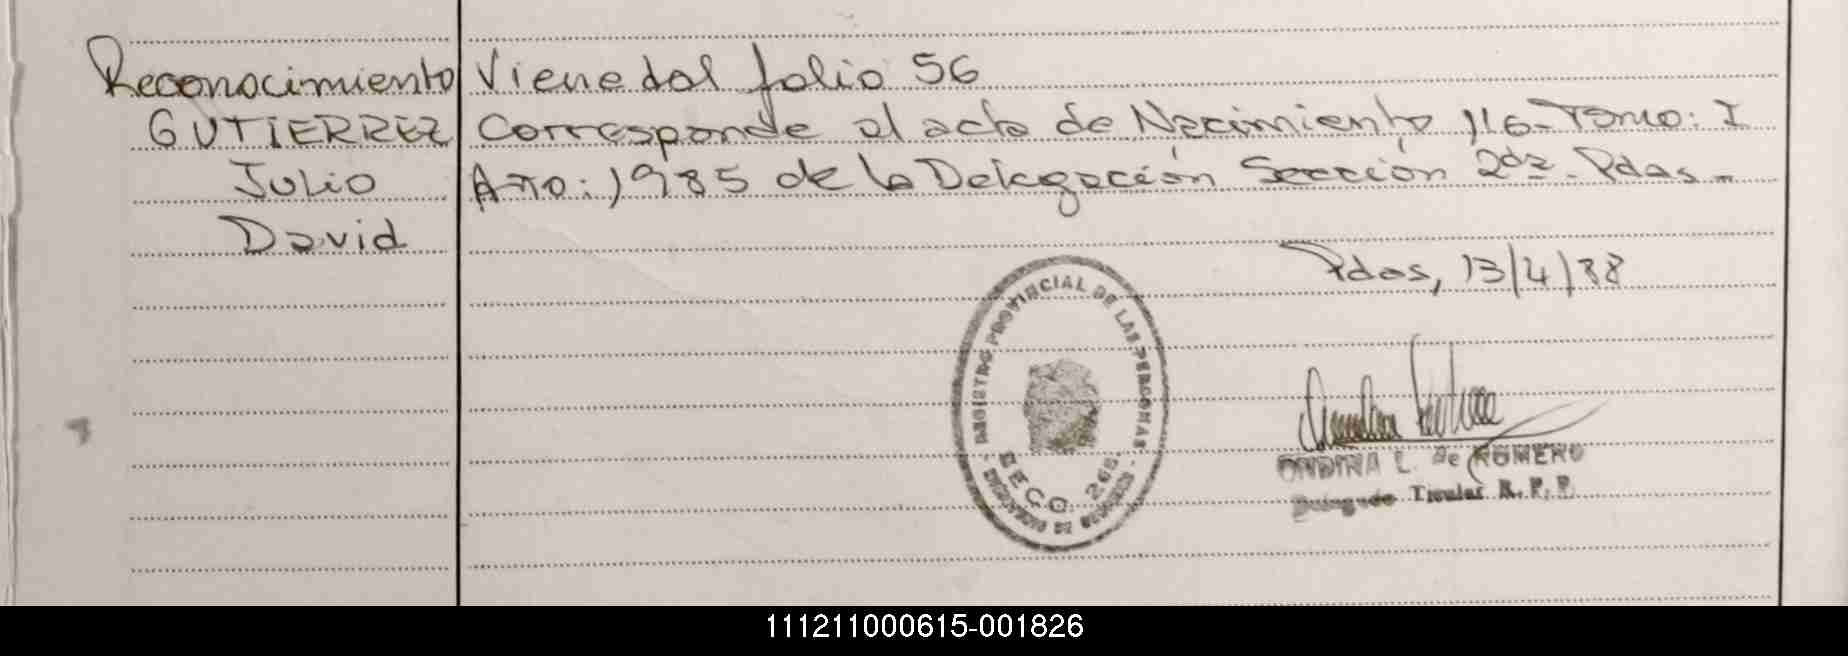 Reconocimiento
GUTIERREZ
Julio
David
Viene del folio 56
Corresponde al acta de Nacimiento 116- Tomo: I
Año: 1985 de la Delegación Sección 2da. Pdas.-
Pdas, 13/4/88
REGISTRO PROVINCIAL DE LAS PERSONAS
SECC. 265
ONDINA L. de ROMERO
Delegado Titular R. P. P.
111211000615-001826